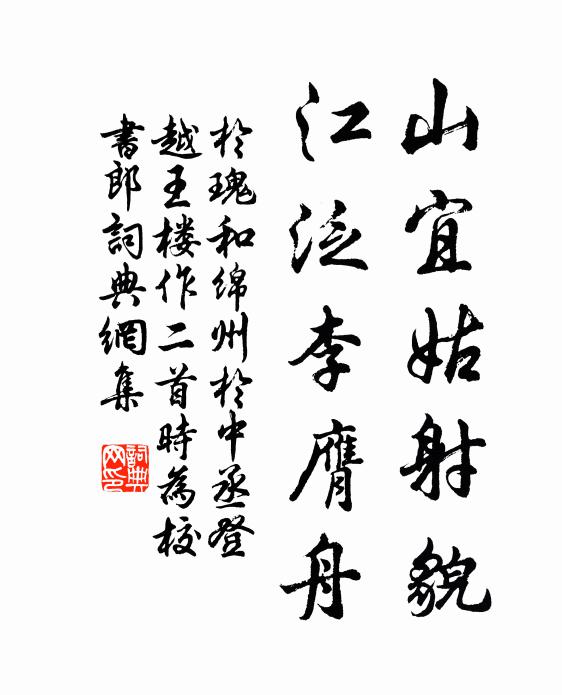 山宜姑射貌
江泛李膺舟
於瑰和綿州於中丞登
越王楼作二首時為校
書郎詞典網集
詞典网印